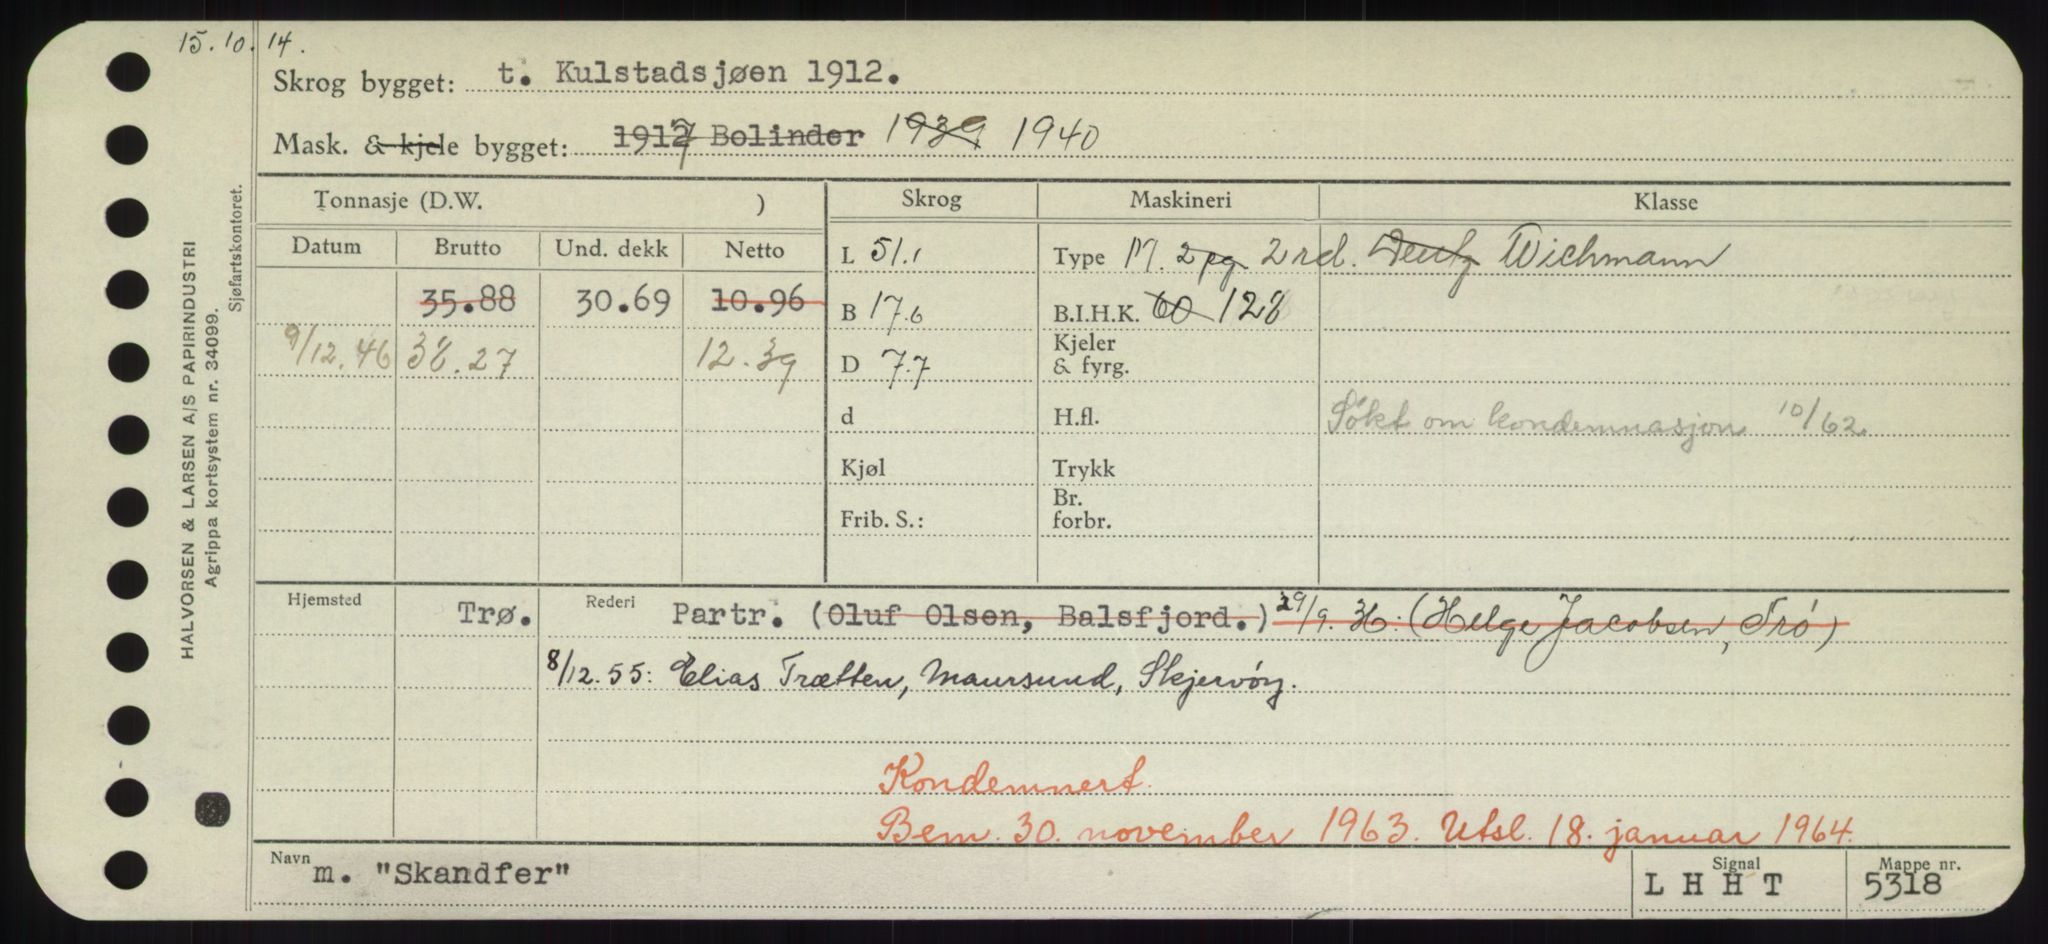 15.10.14.
Skrog bygget: t. Kulstadsjøen 1912.
Mask. & kjele bygget: 1917 Bolinder 1939 1940
Tonnasje (D.W. ) Skrog Maskineri Klasse
Datum Brutto Und. dekk Netto
L 51.1 Type M. 2 pg 2rd. Deutz Wichmann
35.88 30.69 10.96 B 17.6 B.I.H.K. 60 128
9/12.46 38.27 12.39 D 7.7 Kjeler & fyrg.
d H.fl. Søkt om kondemnasjon 10/62
Kjøl Trykk
Frib. S.: Br. forbr.
Hjemsted Trø. Rederi Partr. (Oluf Olsen, Balsfjord.) 29/9. 36: (Helge Jacobsen, Trø)
8/12.55: Elias Trætten, Maursund, Skjervøy.
Kondemnert.
Bem. 30. november 1963. Utsl. 18. januar 1964.
Navn m. "Skandfer" Signal LHHT Mappe nr. 5318
HALVORSEN & LARSEN A/S PAPIRINDUSTRI
Agrippa kortsystem nr. 34099.
Sjøfartskontoret.